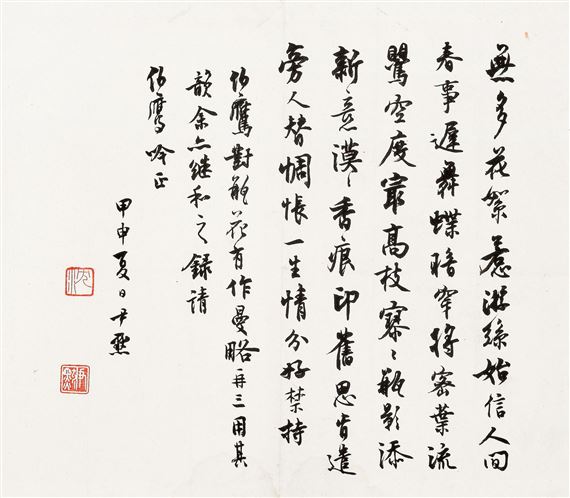 無多花絮惹游絲始信人間
春事遲舞蝶暗牽將密葉流
鶯空度最高枝寥〻瓶影添
新意漠〻香痕印舊思肯遣
旁人替惆悵一生情分好禁持
伯鷹對瓶花有作曼略再三用其
韻余亦继和之錄請
伯鷹吟正
甲申夏日尹默
沈